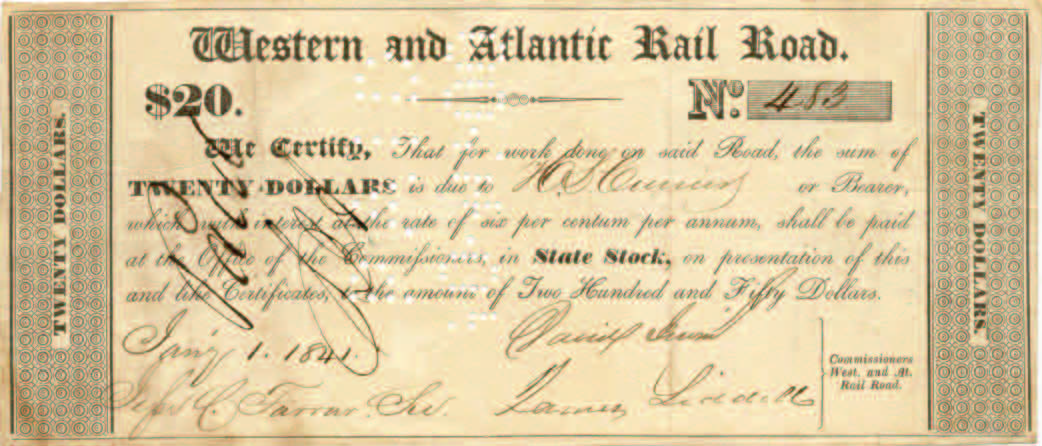 Western and Atlantic Rail Road.
$20.
No. 483
We Certify, That for work done on said Road, the sum of
TWENTY DOLLARS is due to H. S. or Bearer,
which with interest at the rate of six per centum per annum, shall be paid
at the Office of the Commissioners, in State Stock, on presentation of this
and like Certificates, to the amount of Two Hundred and Fifty Dollars.
Jany 1. 1841.
David Irwin
C. Farrar. Sec.
James Liddell
Commissioners
West. and At.
Rail Road.
TWENTY DOLLARS.
TWENTY DOLLARS.